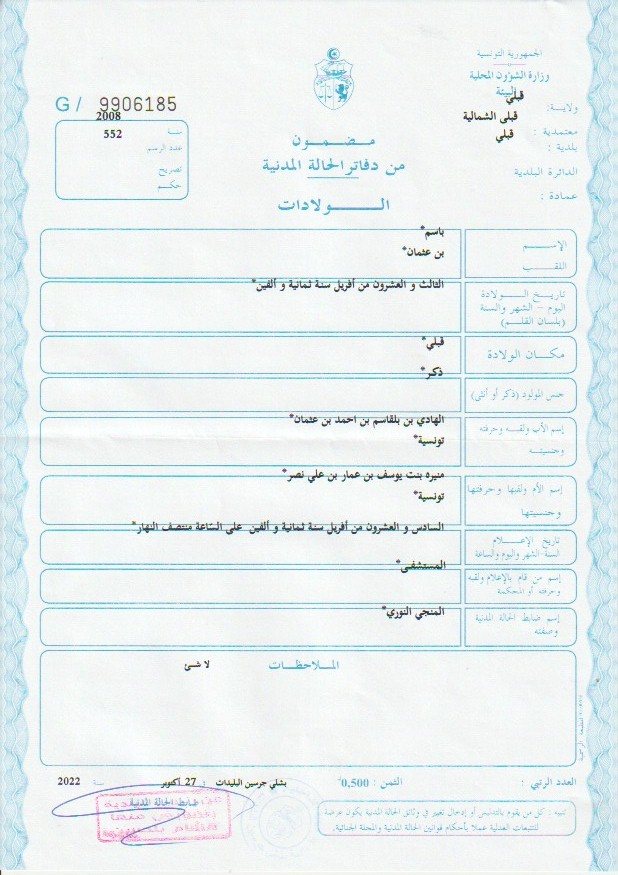 الجمهورية التونسية
وزارة الشؤون المحلية
والبيئة
ولاية: قبلي
معتمدية : قبلى الشمالية
بلدية : قبلي
الدائرة البلدية
عمادة :
G / 9906185
سنة 2008
عدد الرسم 552
تصريح
حكم
مضمون
من دفاتر الحالة المدنية
الولادات
الإسم باسم*
اللقب بن عثمان*
تاريخ الولادة الثالث و العشرون من أفريل سنة ثمانية و ألفين*
اليوم – الشهر والسنة
(بلسان القلم)
مكان الولادة قبلي*
جنس المولود (ذكر أو أنثى) ذكر*
إسم الأب ولقبه وحرفته الهادي بن بلقاسم بن احمد بن عثمان*
وجنسيته تونسية*
إسم الأم ولقبها وحرفتها منيره بنت يوسف بن عمار بن علي نصر*
وجنسيتها تونسية*
تاريخ الإعلام السادس و العشرون من أفريل سنة ثمانية و ألفين على الساعة منتصف النهار*
السنة الشهر واليوم والساعة
إسم من قام بالإعلام ولقبه المستشفى*
وحرفته أو المحكمة
إسم ضابط الحالة المدنية المنجي النوري*
وصفته
الملاحظات
لا شئ
العدد الرتبي : الثمن : 0,500 بشلي جرسين البليدات : 27 أكتوبر سنة 2022
ضابط الحالة المدنية
تنبيه : كل من يقوم بالتدليس أو إدخال تغيير في وثائق الحالة المدنية يكون عرضة
للتتبعات العدلية عملا بأحكام قوانين الحالة المدنية والمجلة الجنائية.